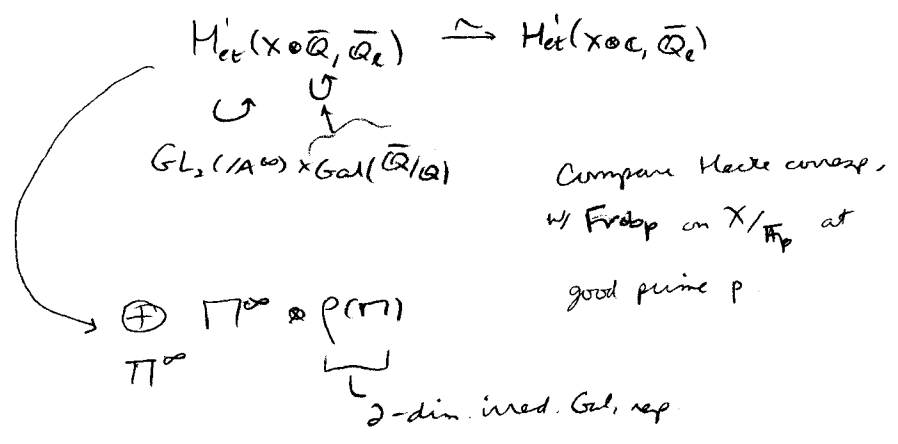 H¹_et(X⊗Q̄, Q̄_ℓ) ⥲ H¹_et(X⊗C, Q̄_ℓ)
↺ ↺
GL₂(A^∞) × Gal(Q̄/Q)
Compare Hecke corresp.
w/ Frob_p on X/F̄_p at
good prime p
⊕_{Π^∞} Π^∞ ⊗ ρ(Π)
2-dim. irred. Gal. rep